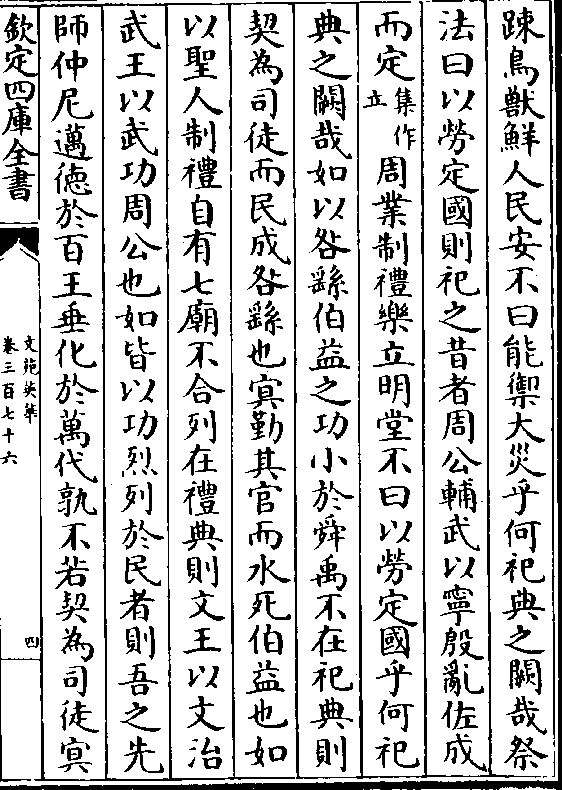 踈鳥獸鮮人民安不曰能禦大災乎何祀典之闕哉祭
法曰以勞定國則祀之昔者周公輔武以寧殷亂佐成
而定集作立周業制禮樂立明堂不曰以勞定國乎何祀
典之闕哉如以咎繇伯益之功小於舜禹不在祀典則
契為司徒而民成咎繇也冥勤其官而水死伯益也如
以聖人制禮自有七廟不合列在禮典則文王以文治
武王以武功周公也如皆以功烈列於民者則吾之先
師仲尼邁德於百王垂化於萬代孰不若契為司徒冥
欽定四庫全書
文苑英華
卷三百七十六
四